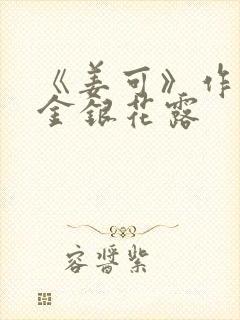 《姜可》作
金銀花露
容晉紫